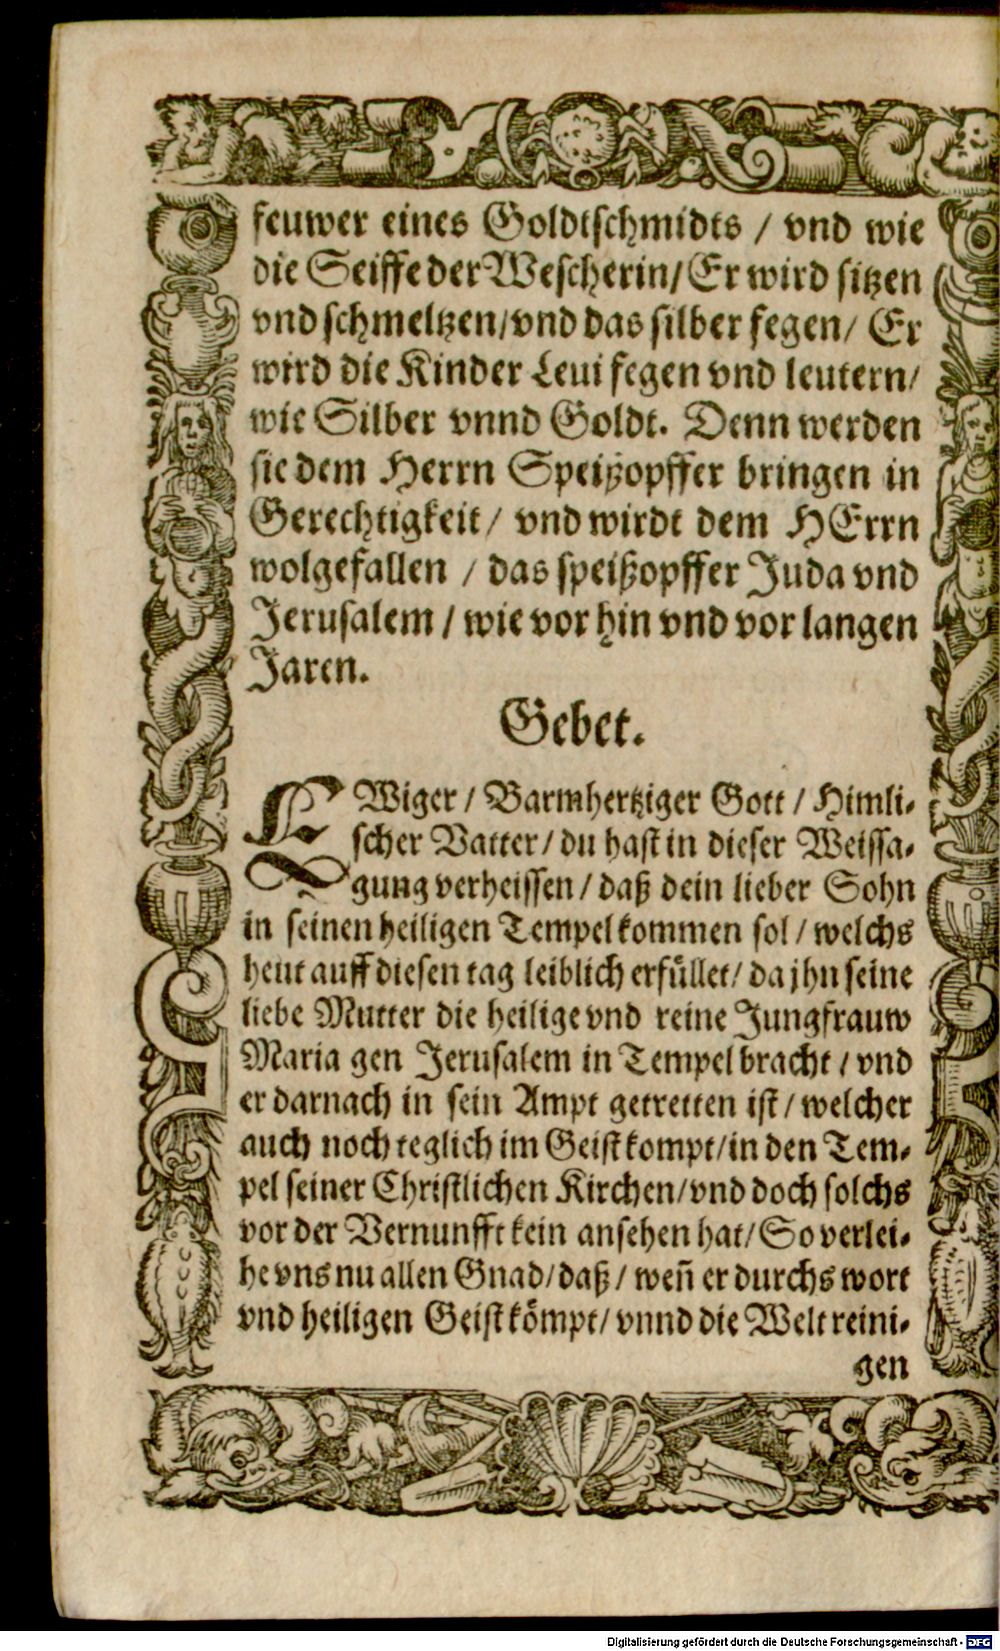 feuwer eines Goldtschmidts / vnd wie
die Seiffe der Wescherin/ Er wird sitzen
vnd schmeltzen/ vnd das silber fegen/ Er
wird die Kinder Leui fegen vnd leutern/
wie Silber vnnd Goldt. Denn werden
sie dem Herrn Speißopffer bringen in
Gerechtigkeit/ vnd wirdt dem HErrn
wolgefallen / das speißopffer Juda vnd
Jerusalem / wie vor hin vnd vor langen
Jaren.
Gebet.
EWiger / Barmhertziger Gott / Himli-
scher Vatter/ du hast in dieser Weissa-
gung verheissen / daß dein lieber Sohn
in seinen heiligen Tempel kommen sol / welchs
heut auff diesen tag leiblich erfüllet/ da jhn seine
liebe Mutter die heilige vnd reine Jungfrauw
Maria gen Jerusalem in Tempel bracht / vnd
er darnach in sein Ampt getretten ist / welcher
auch noch teglich im Geist kompt/ in den Tem-
pel seiner Christlichen Kirchen/ vnd doch solchs
vor der Vernunfft kein ansehen hat/ So verlei-
he vns nu allen Gnad/ daß / weñ er durchs wort
vnd heiligen Geist kömpt/ vnnd die Welt reini-
gen
Digitalisierung gefördert durch die Deutsche Forschungsgemeinschaft - DFG